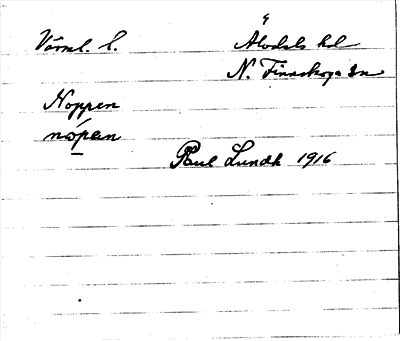 Värml. l. Älvdals hd
N. Finnskoga sn
Noppen
nópan
Paul Lundh 1916